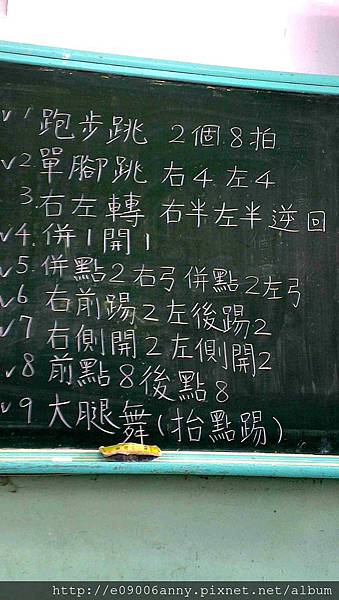 v 1 跑步跳 2個8拍
v 2 單腳跳 右4 左4
3. 右左轉 右半左半逆回
v 4. 併1開1
v 5. 併點2右弓併點2左弓
v 6 右前踢2左後踢2
v 7 右側開2左側開2
v 8 前點8後點8
v 9 大腿舞(抬點踢)
http://e09006anny.pixnet.net/album